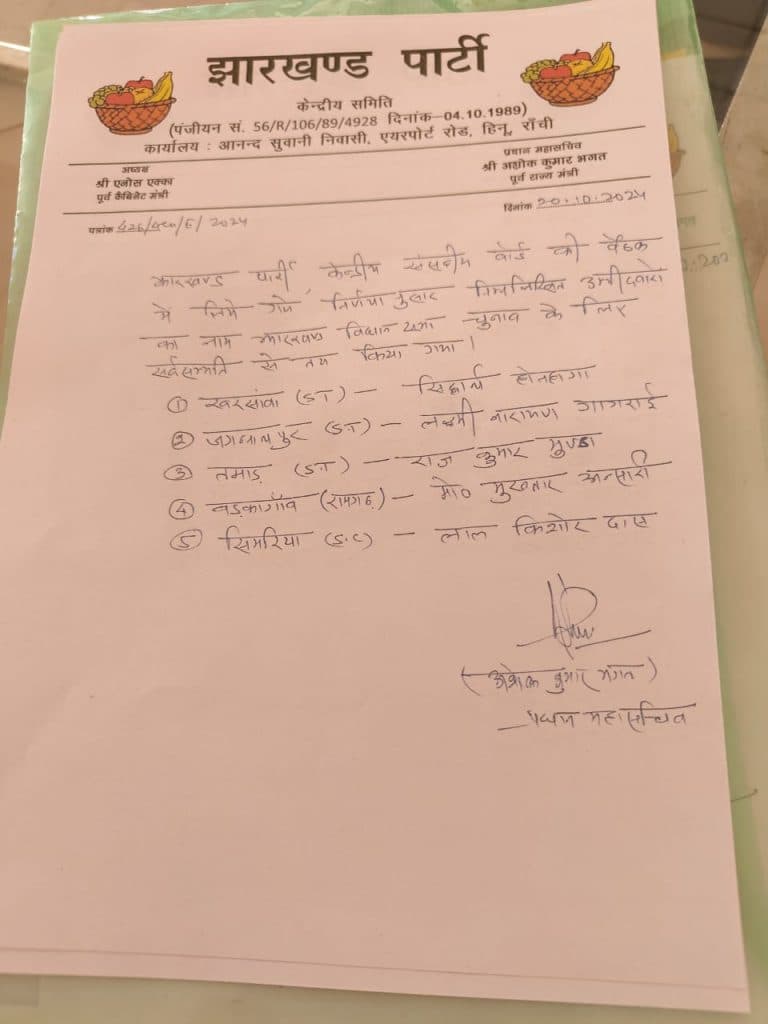 झारखण्ड पार्टी
केन्द्रीय समिति
(पंजीयन सं. 56/R/106/89/4928 दिनांक-04.10.1989)
कार्यालय : आनन्द सुवानी निवासी, एयरपोर्ट रोड, हिनू, राँची
अध्यक्ष
श्री एनोस एक्का
पूर्व कैबिनेट मंत्री
प्रधान महासचिव
श्री अशोक कुमार भगत
पूर्व राज्य मंत्री
पत्रांक 2024
दिनांक 20.10.2024
झारखण्ड पार्टी केन्द्रीय संसदीय बोर्ड की बैठक
में लिये गये निर्णयानुसार निम्नलिखित उम्मीदवारों
का नाम झारखण्ड विधान सभा चुनाव के लिए
सर्वसम्मति से तय किया गया।
① खरसांवा (ST) - सिद्धार्थ होनहागा
② जगन्नाथपुर (ST) - लक्ष्मी नारायण गागराई
③ तमाड़ (ST) - राज कुमार मुण्डा
④ बड़कागाँव (रामगढ़) - मो० मुख्तार अन्सारी
⑤ सिमरिया (S.C) - लाल किशोर दास
(अशोक कुमार भगत)
प्रधान महासचिव